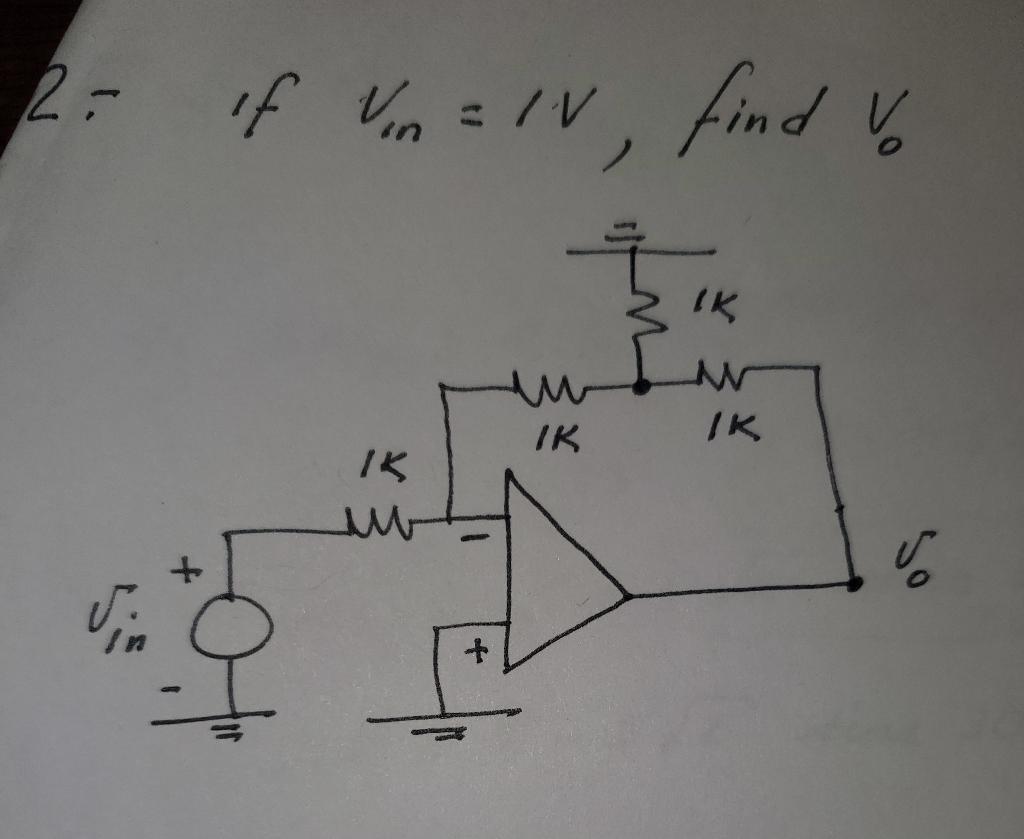 2:- if Vin = 1V, find Vo
1K
1K
1K
1K
+
Vin
-
-
+
Vo